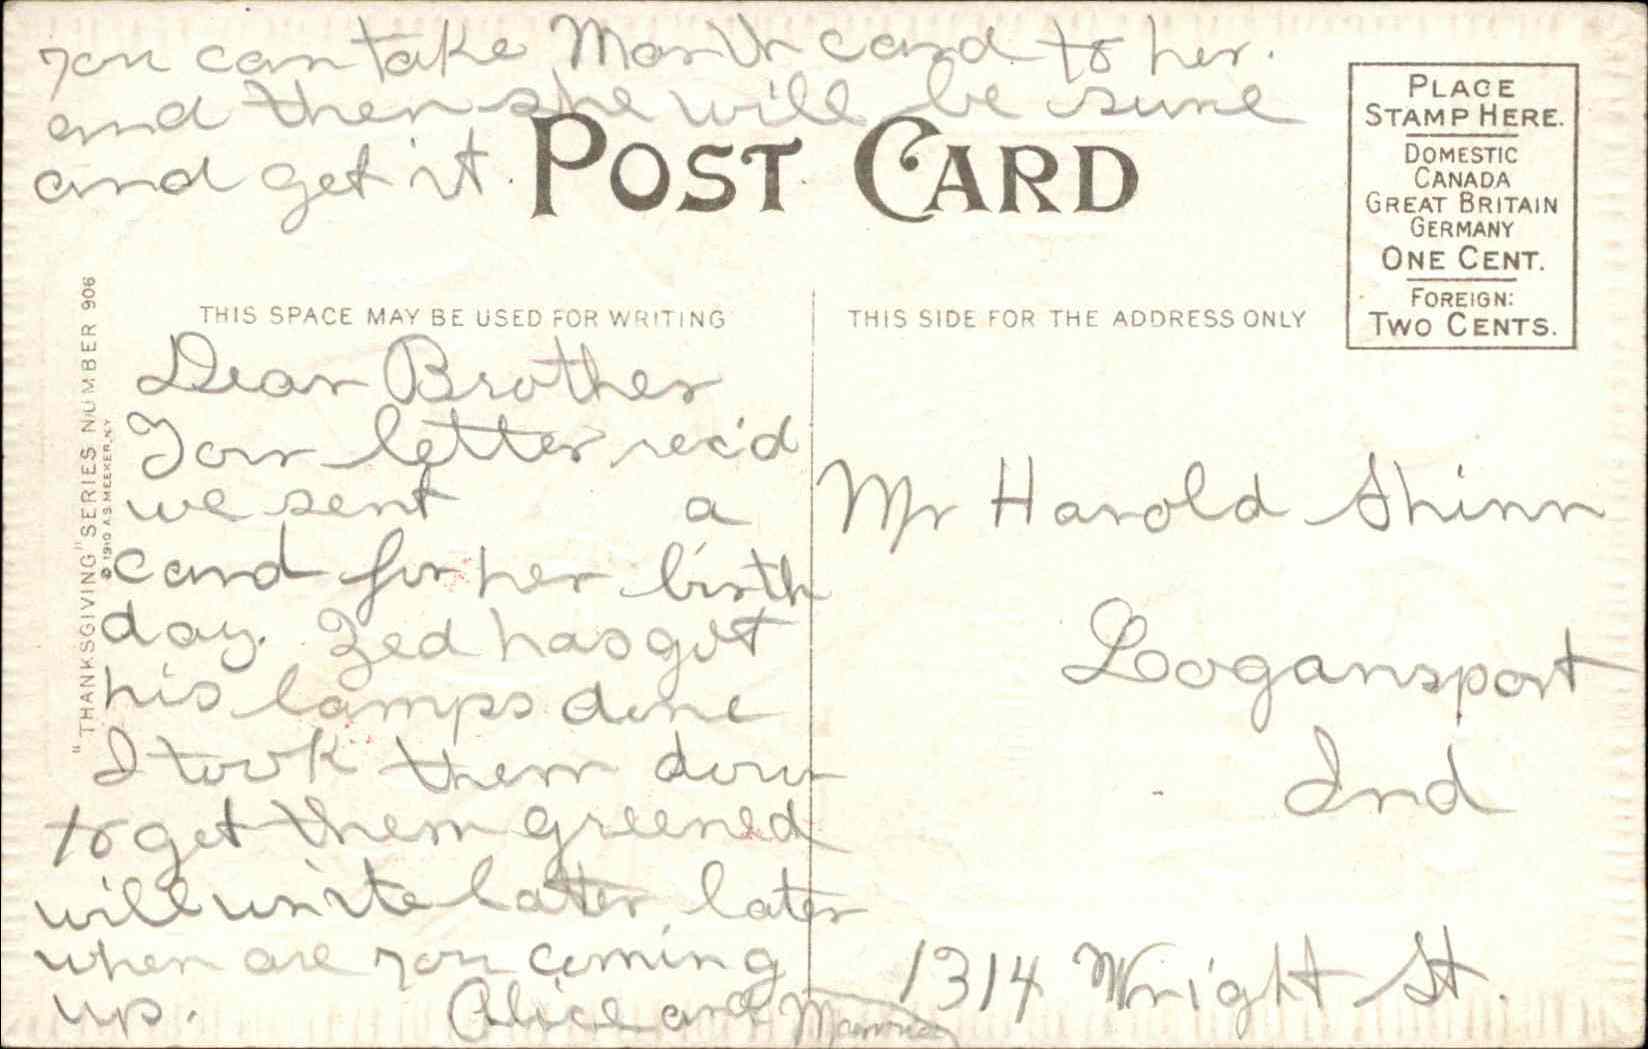 you can take Marth card to her.
and then she will be sure
and get it.
POST CARD
PLACE
STAMP HERE.
DOMESTIC
CANADA
GREAT BRITAIN
GERMANY
ONE CENT.
FOREIGN:
TWO CENTS.
"THANKSGIVING" SERIES NUMBER 906
© 1910 A.S. MEEKER, N.Y.
THIS SPACE MAY BE USED FOR WRITING
Dear Brother
Your letter rec'd
we sent a
card for her birth
day. Zed has got
his lamps done
I took them down
to get them greened
will write later, later
when are you coming
up. Alice and
THIS SIDE FOR THE ADDRESS ONLY
Mr Harold Shinn
Logansport
Ind
1314 Wright St.